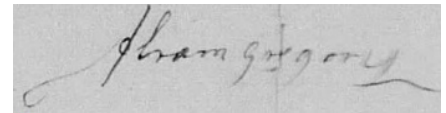 Abram Gregory